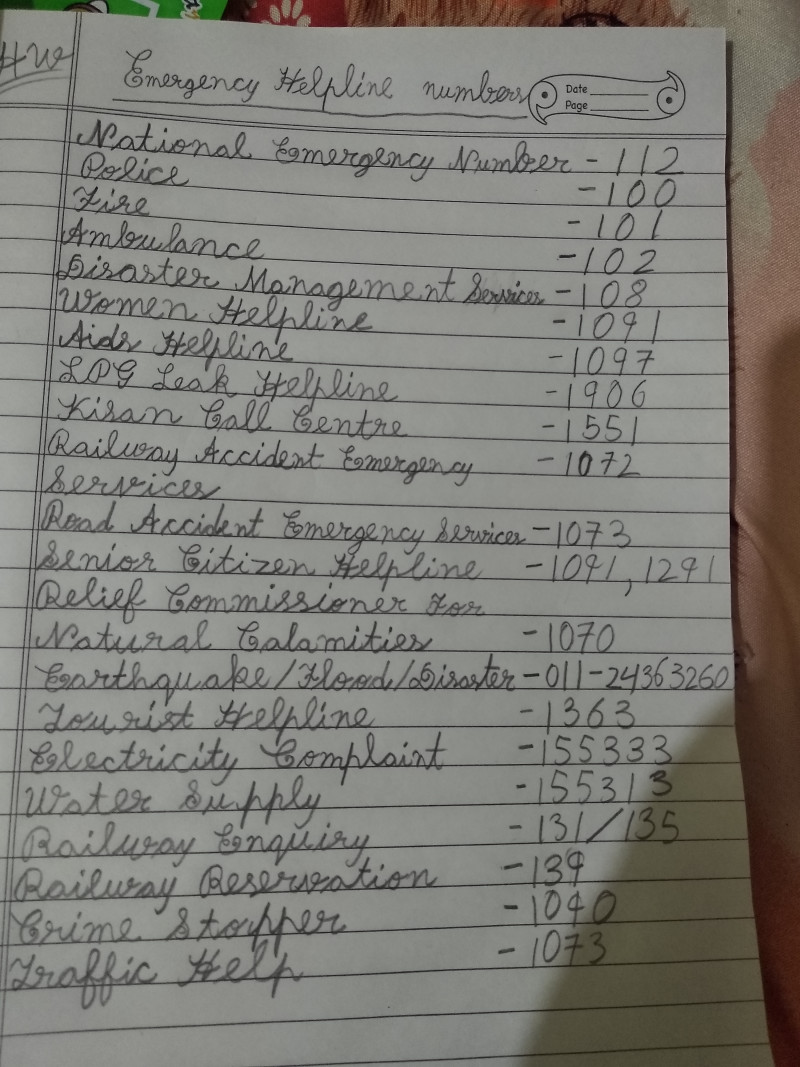 HW
Emergency Helpline numbers
Date
Page
National Emergency Number - 112
Police - 100
Fire - 101
Ambulance - 102
Disaster Management Services - 108
Women Helpline - 1091
Aids Helpline - 1097
LPG Leak Helpline - 1906
Kisan Call Centre - 1551
Railway Accident Emergency - 1072
Services
Road Accident Emergency Services - 1073
Senior Citizen Helpline - 1091, 1291
Relief Commissioner For
Natural Calamities - 1070
Earthquake/Flood/Disaster - 011-24363260
Tourist Helpline - 1363
Electricity Complaint - 155333
Water Supply - 155313
Railway Enquiry - 131/135
Railway Reservation - 139
Crime Stopper - 1090
Traffic Help - 1073